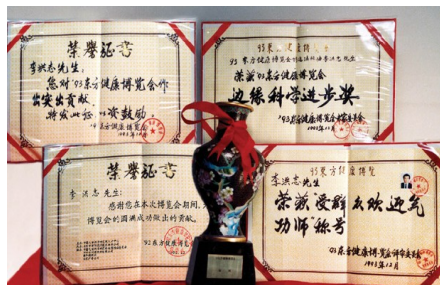 荣誉证书
李洪志先生:
您对'93东方健康博览会作
出突出贡献,
特发此证 以资鼓励。
'93东方健康博览会
1993年12月
93东方健康博览会
荣获'93东方健康博览会
边缘科学进步奖
'93东方健康博览会
1993年12月
荣誉证书
李洪志先生:
感谢您在本次博览会期间,
博览会的圆满成功做出的贡献。
'92东方健康博览会
93东方健康博览
李洪志先生
荣获受群众欢迎气
功师"称号
93东方健康博览会评审委员会
1993年12月